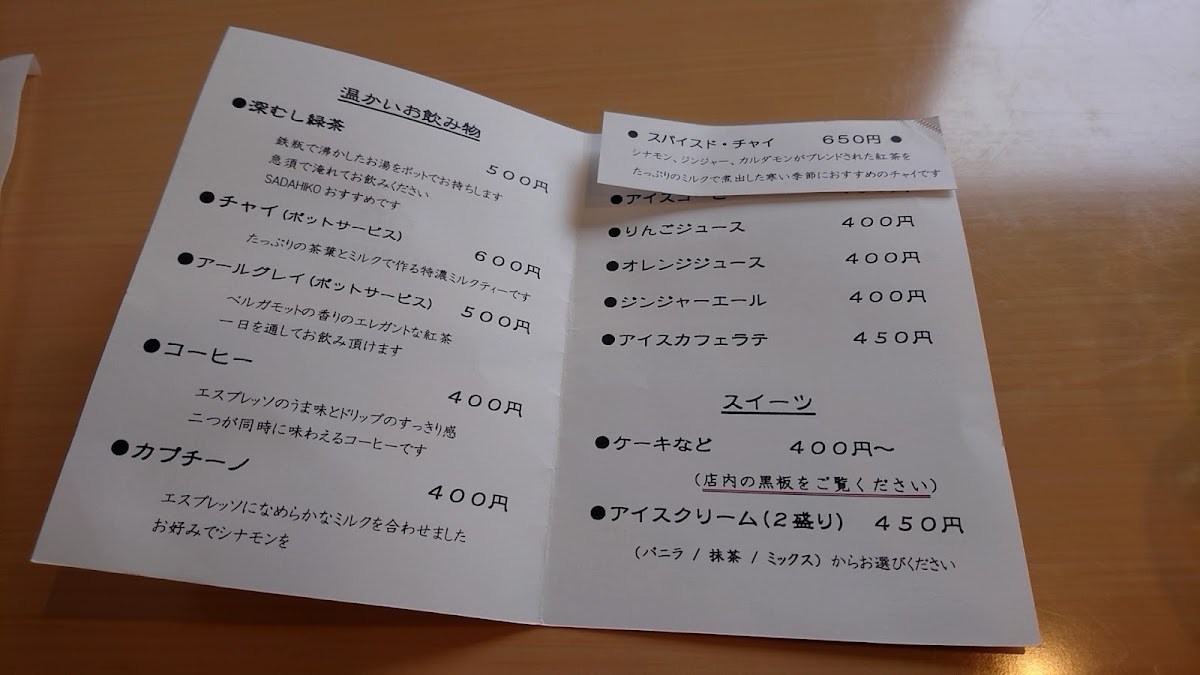 温かいお飲み物
●深むし緑茶
500円
鉄瓶で沸かしたお湯をポットでお持ちします
急須で淹れてお飲みください
SADAHIKOおすすめです
●チャイ(ポットサービス)
600円
たっぷりの茶葉とミルクで作る特濃ミルクティーです
●アールグレイ(ポットサービス)
500円
ベルガモットの香りのエレガントな紅茶
一日を通してお飲み頂けます
●コーヒー
400円
エスプレッソのうま味とドリップのすっきり感
二つが同時に味わえるコーヒーです
●カプチーノ
400円
エスプレッソになめらかなミルクを合わせました
お好みでシナモンを
● スパイスド・チャイ 650円 ●
シナモン、ジンジャー、カルダモンがブレンドされた紅茶を
たっぷりのミルクで煮出した寒い季節におすすめのチャイです
●アイスコーヒー
●りんごジュース 400円
●オレンジジュース 400円
●ジンジャーエール 400円
●アイスカフェラテ 450円
スイーツ
●ケーキなど 400円～
(店内の黒板をご覧ください)
●アイスクリーム(2盛り) 450円
(バニラ / 抹茶 / ミックス) からお選びください